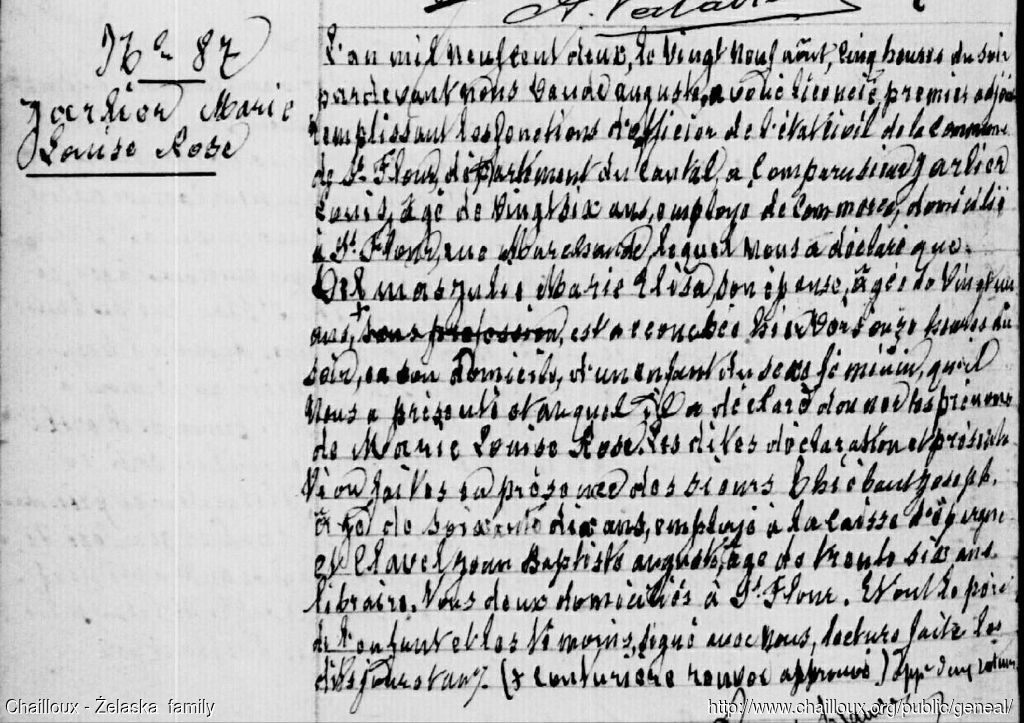 N° 87
Jarlier Marie
Louise Rose
L'an mil neuf cent deux, le vingt neuf août, cinq heures du soir
pardevant nous Vaude auguste, avoué licencié, premier adjoint
remplissant les fonctions d'officier de l'état civil de la commune
de St Flour, département du Cantal, a comparu sieur Jarlier
Louis, âgé de vingt six ans, employé de commerce, domicilié
à St Flour, rue Marchande, lequel nous a déclaré que
Delmas Julie Marie Elisa, son épouse, âgée de vingt un
ans, + sans profession, est accouchée hier vers onze heures du
soir, en son domicile, d'un enfant du sexe féminin, qu'il
nous a présenté et auquel il a déclaré donner les prénoms
de Marie Louise Rose. Les dites déclaration et présenta
tion faites en présence des sieurs Thiébaut Joseph,
âgé de soixante dix ans, employé à la caisse d'épargne
et Clavel Jean Baptiste auguste, âgé de trente six ans
libraire. Tous deux domiciliés à St Flour. Et ont le père
de l'enfant et les témoins, signé avec nous, lecture faite les
dits jour et an. (+ couturière renvoi approuvé)
Chailloux - Żelaska family
http://www.chailloux.org/public/geneal/